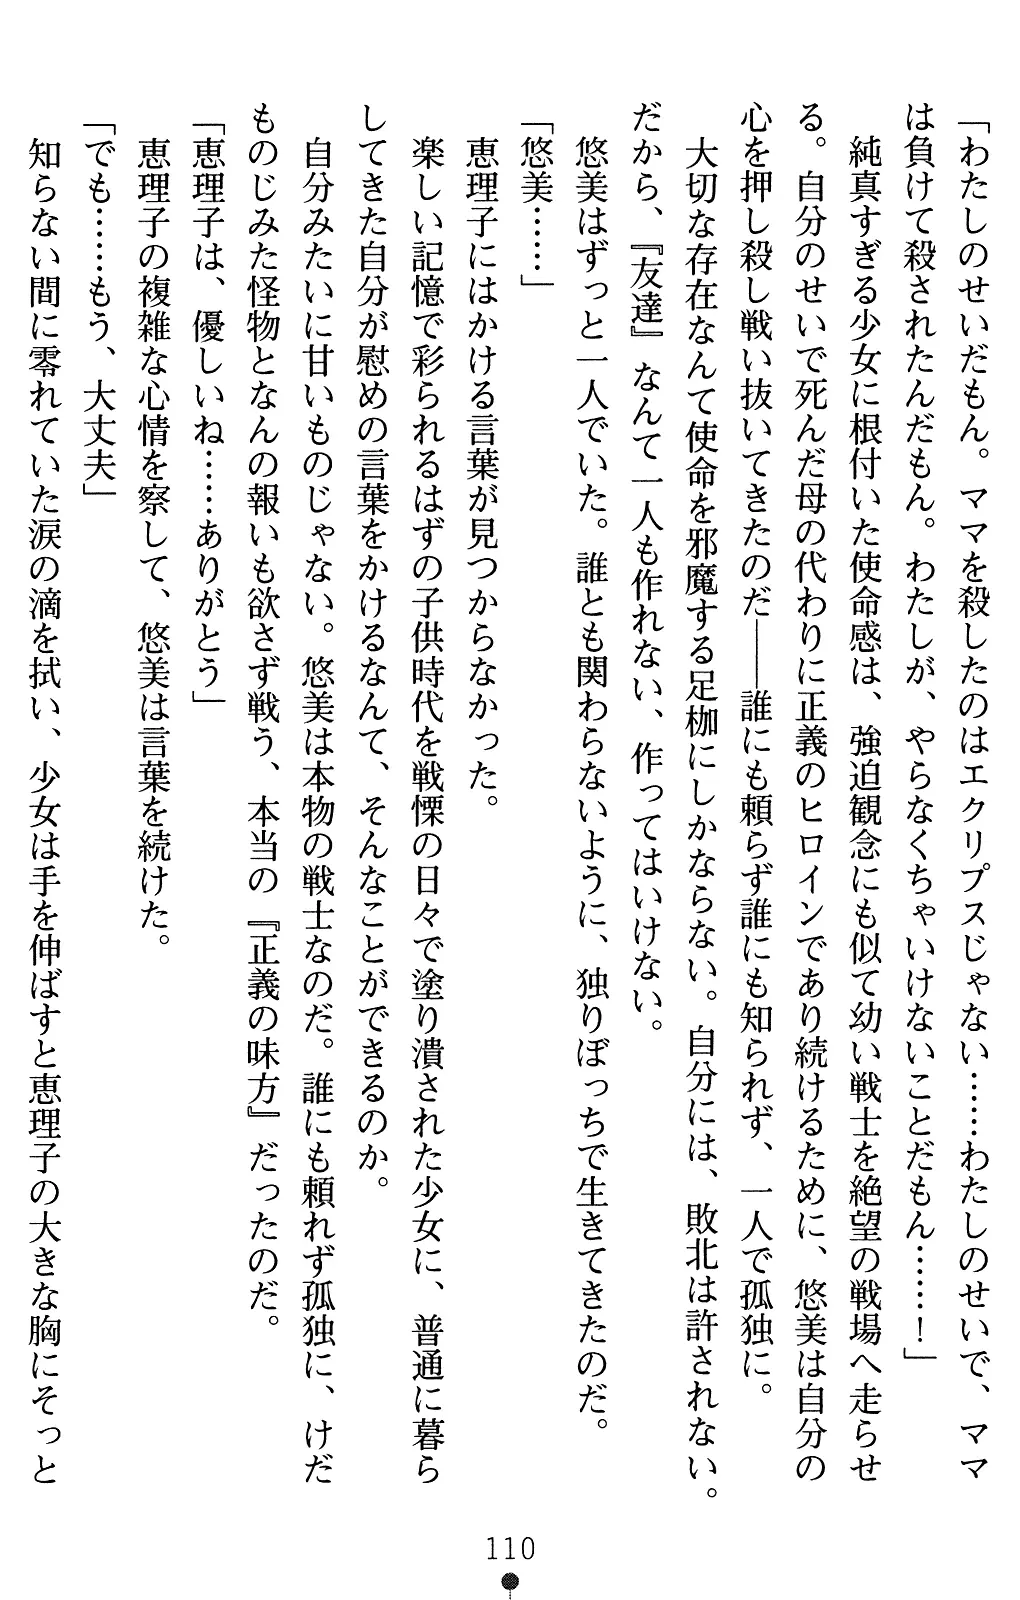 「わたしのせいだもん。ママを殺したのはエクリプスじゃない……わたしのせいで、ママ
は負けて殺されたんだもん。わたしが、やらなくちゃいけないことだもん……！」
　純真すぎる少女に根付いた使命感は、強迫観念にも似て幼い戦士を絶望の戦場へ走らせ
る。自分のせいで死んだ母の代わりに正義のヒロインであり続けるために、悠美は自分の
心を押し殺し戦い抜いてきたのだ――誰にも頼らず誰にも知られず、一人で孤独に。
　大切な存在なんて使命を邪魔する足枷にしかならない。自分には、敗北は許されない。
だから、『友達』なんて一人も作れない、作ってはいけない。
　悠美はずっと一人でいた。誰とも関わらないように、独りぼっちで生きてきたのだ。
「悠美……」
　恵理子にはかける言葉が見つからなかった。
　楽しい記憶で彩られるはずの子供時代を戦慄の日々で塗り潰された少女に、普通に暮ら
してきた自分が慰めの言葉をかけるなんて、そんなことができるのか。
　自分みたいに甘いものじゃない。悠美は本物の戦士なのだ。誰にも頼れず孤独に、けだ
ものじみた怪物となんの報いも欲さず戦う、本当の『正義の味方』だったのだ。
「恵理子は、優しいね……ありがとう」
　恵理子の複雑な心情を察して、悠美は言葉を続けた。
「でも……もう、大丈夫」
　知らない間に零れていた涙の滴を拭い、少女は手を伸ばすと恵理子の大きな胸にそっと
110